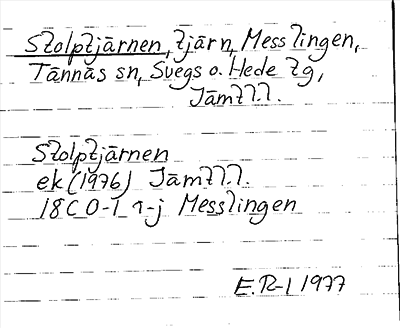 Stolptjärnen, tjärn, Messlingen,
Tännäs sn, Svegs o. Hede tg,
Jämtl.l.
Stolptjärnen
ek (1976) Jämtl.l.
18C 0-1 i-j Messlingen
E.R-l 1977